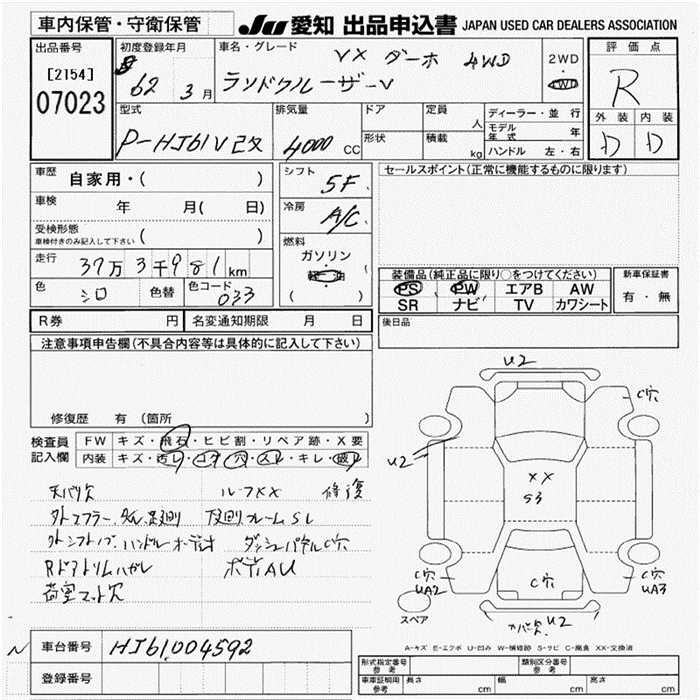 車内保管・守衛保管
JU 愛知 出品申込書 JAPAN USED CAR DEALERS ASSOCIATION
出品番号
[2154]
07023
初度登録年月
62 3月
車名・グレード
VX ターボ 4WD
ランドクルーザーV
2WD
4WD
評価点
R
外装 内装
D D
型式
P-HJ61V改
排気量
4000 CC
ドア
形状
定員 人
積載 kg
ディーラー・並行
モデル年式 年
ハンドル 左・右
車歴 自家用・( )
車検 年 月( 日)
受検形態
車検付きのみ記入して下さい ( )
走行 37万3千981km
色 シロ 色替 色コード 033
シフト 5F
冷房 A/C
燃料
ガソリン
( )
セールスポイント(正常に機能するものに限ります)
装備品(純正品に限り○をつけてください)
PS PW エアB AW
SR ナビ TV カワシート
新車保証書
有・無
R券 円 名変通知期限 月 日
後日品
注意事項申告欄(不具合内容等は具体的に記入して下さい)
修復歴 有 (箇所 )
検査員記入欄
FW キズ・飛石・ヒビ割・リペア跡・X要
内装 キズ・汚レ・コゲ・穴・スレ・キレ・破レ
天バリ欠 ルーフXX 修復
外シフトノブ、ハンドル オーディオ ダッシュパネルC穴
Rドアトリムハガレ ボディAU
荷室マット欠
U2
C穴
U2
XX
S3
C穴
C穴
UA2
C穴
UA3
U2
スペア
A-キズ E-エクボ U-凹み W-補修跡 S-サビ C-腐食 XX-交換済
N
車台番号 HJ61004592
登録番号
形式指定番号 参考
類別区分番号 参考
車庫証明用 参考 長さ cm 幅 cm 高さ cm